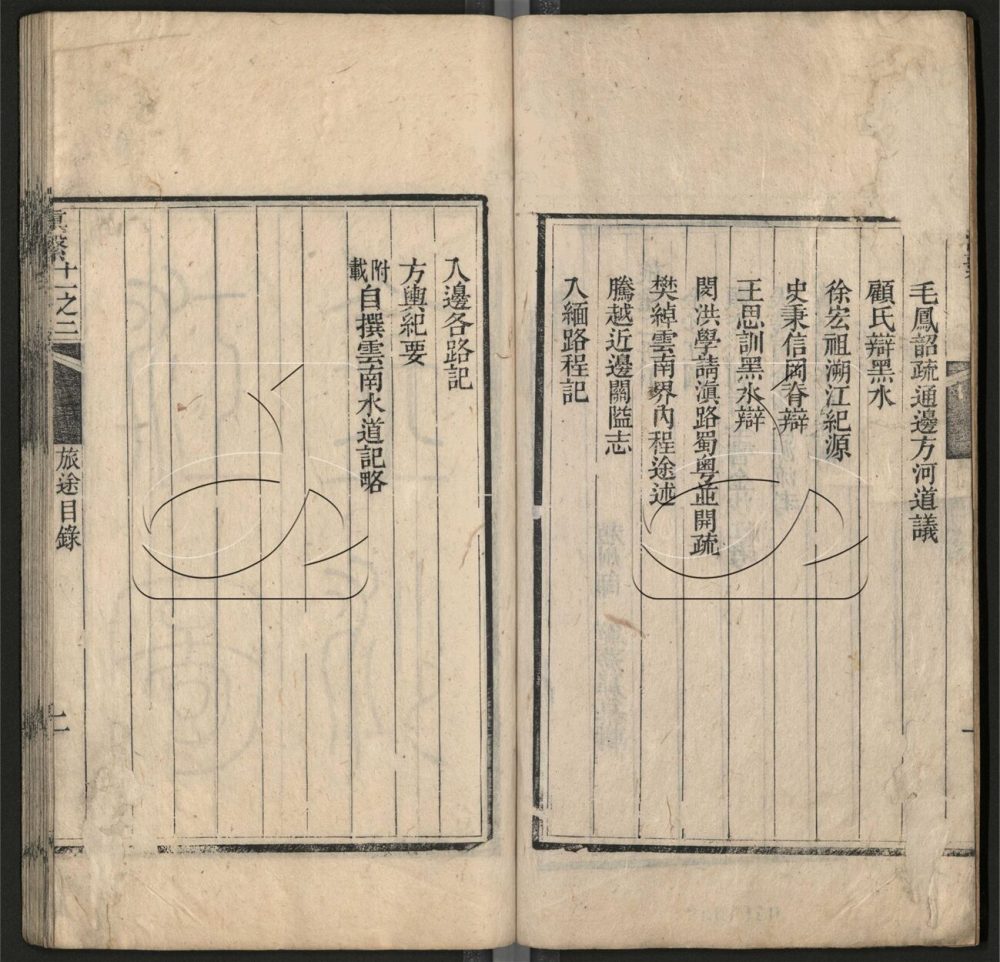 毛鳳韶疏通邊方河道議
顧氏辯黑水
徐宏祖溯江紀源
史秉信岡脊辯
王思訓黑水辯
閔洪學請滇路蜀粵並開疏
樊綽雲南界內程途述
騰越近邊關隘志
入緬路程記
入邊各路記
方輿紀要
附載自撰雲南水道記略
滇繫十一之二
旅途目錄